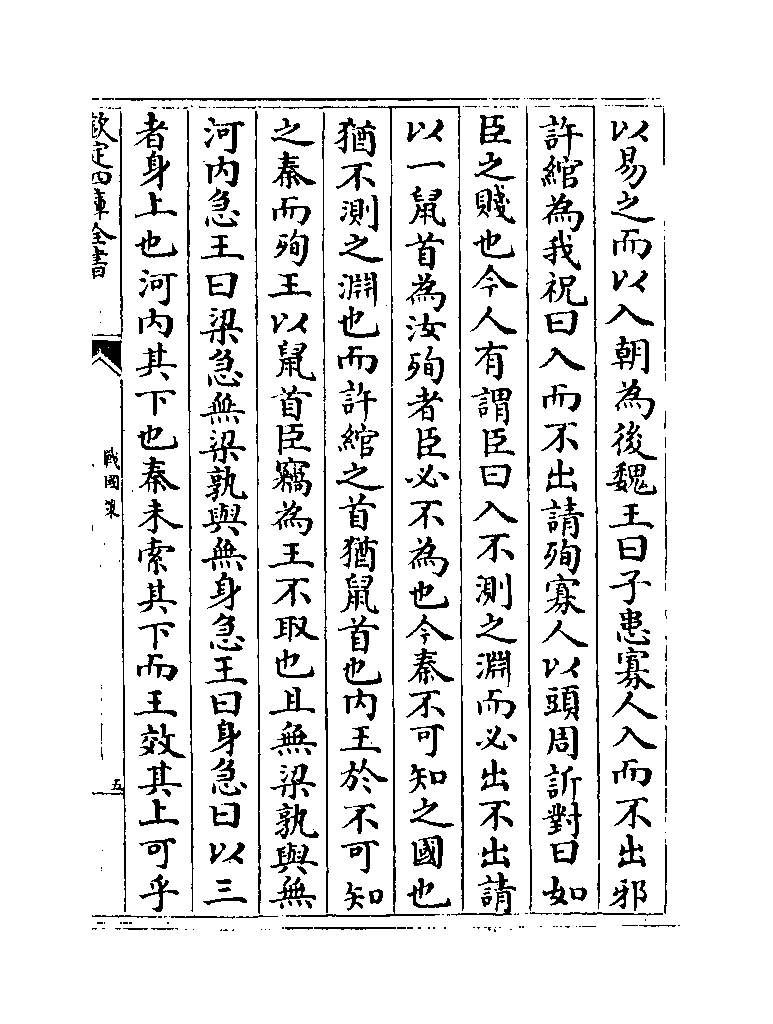 以易之而以入朝為後魏王曰子患寡人入而不出邪
許綰為我祝曰入而不出請殉寡人以頭周訢對曰如
臣之賤也今人有謂臣曰入不測之淵而必出不出請
以一鼠首為汝殉者臣必不為也今秦不可知之國也
猶不測之淵也而許綰之首猶鼠首也内王於不可知
之秦而殉王以鼠首臣竊為王不取也且無梁孰與無
河内急王曰梁急無梁孰與無身急王曰身急曰以三
者身上也河内其下也秦未索其下而王效其上可乎
欽定四庫全書
戰國策
五